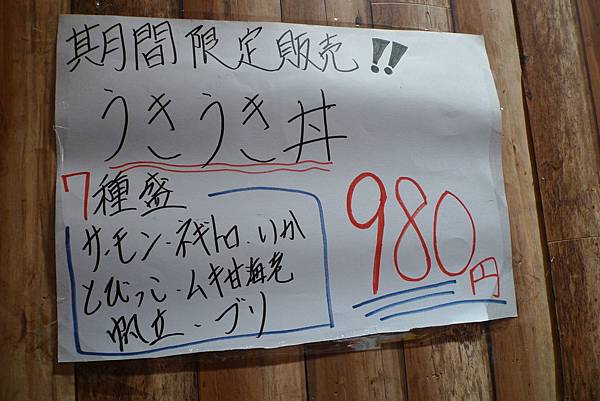 期間限定販売!!
うきうき丼
7種盛
サーモン・ネギトロ・いか
とびっこ・ムキ甘海老
帆立・ブリ
980円